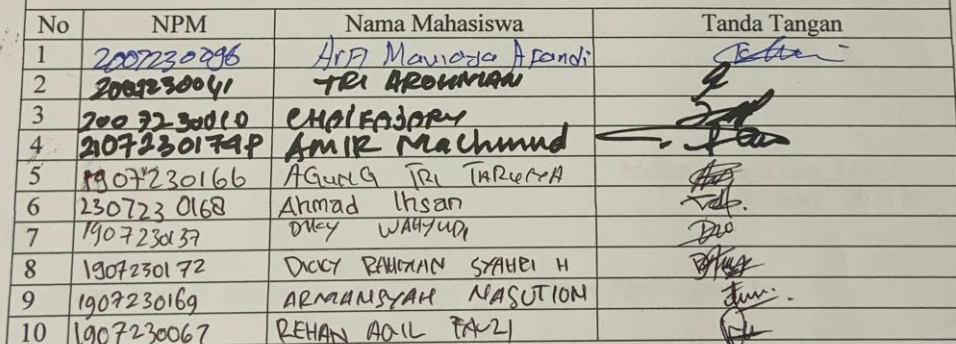 No NPM Nama Mahasiswa Tanda Tangan
1 2007230096 Arfi Afandi
2 2007230041 TRI AROHMAN
3 2007230010
4 2107230174P AMIR Machmud
5 1907230166 AGUNG TRI
6 2307230168 Ahmad Ihsan
7 1907230137 WAHYUDI
8 1907230172 DICKY RAHMAN SYAHBI H
9 1907230169 ARMANSYAH NASUTION
10 1907230067 REHAN AQIL FAUZI